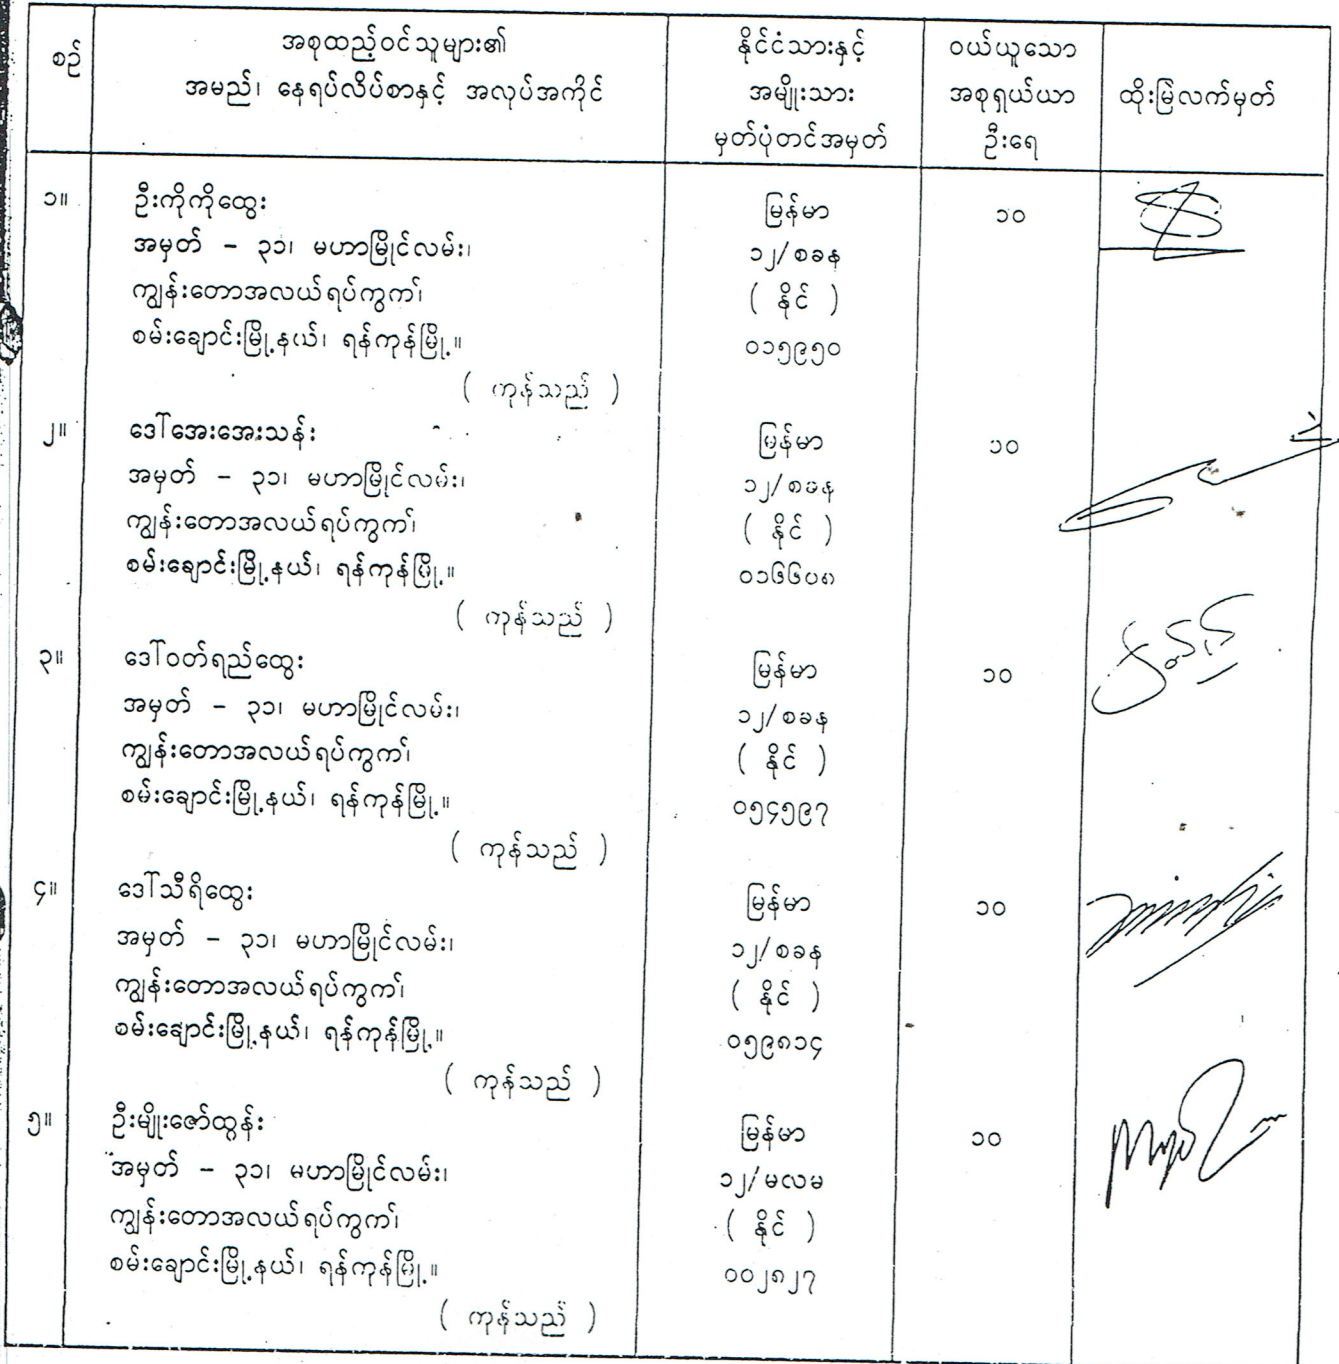 စဉ်
အစုထည့်ဝင်သူများ၏
အမည်၊ နေရပ်လိပ်စာနှင့် အလုပ်အကိုင်
နိုင်ငံသားနှင့်
အမျိုးသား
မှတ်ပုံတင်အမှတ်
ဝယ်ယူသော
အစုရှယ်ယာ
ဦးရေ
ထိုးမြဲလက်မှတ်
၁။
ဦးကိုကိုထွေး
အမှတ် – ၃၁၊ မဟာမြိုင်လမ်း၊
ကျွန်းတောအလယ်ရပ်ကွက်၊
စမ်းချောင်းမြို့နယ်၊ ရန်ကုန်မြို့။
( ကုန်သည် )
မြန်မာ
၁၂/စခန
( နိုင် )
၀၁၅၉၅၀
၁၀
၂။
ဒေါ်အေးအေးသန်း
အမှတ် – ၃၁၊ မဟာမြိုင်လမ်း၊
ကျွန်းတောအလယ်ရပ်ကွက်၊
စမ်းချောင်းမြို့နယ်၊ ရန်ကုန်မြို့။
( ကုန်သည် )
မြန်မာ
၁၂/စခန
( နိုင် )
၁၀
၃။
ဒေါ်ဝတ်ရည်ထွေး
အမှတ် – ၃၁၊ မဟာမြိုင်လမ်း၊
ကျွန်းတောအလယ်ရပ်ကွက်၊
စမ်းချောင်းမြို့နယ်၊ ရန်ကုန်မြို့။
( ကုန်သည် )
မြန်မာ
၁၂/စခန
( နိုင် )
၀၅၄၅၉၇
၁၀
၄။
ဒေါ်သီရိထွေး
အမှတ် – ၃၁၊ မဟာမြိုင်လမ်း၊
ကျွန်းတောအလယ်ရပ်ကွက်၊
စမ်းချောင်းမြို့နယ်၊ ရန်ကုန်မြို့။
( ကုန်သည် )
မြန်မာ
၁၂/စခန
( နိုင် )
၀၅၉၈၁၄
၁၀
၅။
ဦးမျိုးဇော်ထွန်း
အမှတ် – ၃၁၊ မဟာမြိုင်လမ်း၊
ကျွန်းတောအလယ်ရပ်ကွက်၊
စမ်းချောင်းမြို့နယ်၊ ရန်ကုန်မြို့။
( ကုန်သည် )
မြန်မာ
၁၂/မလမ
( နိုင် )
၀၀၂၈၂၇
၁၀